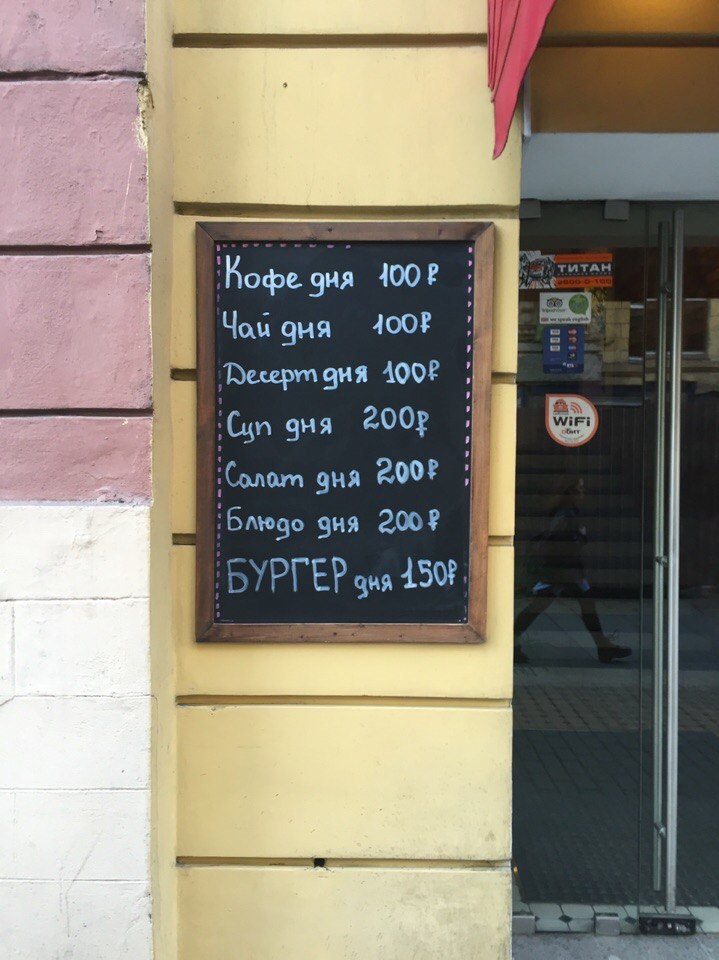 Кофе дня 100₽
Чай дня 100₽
Десерт дня 100₽
Суп дня 200₽
Салат дня 200₽
Блюдо дня 200₽
БУРГЕР дня 150₽
ТИТАН
we speak english
WiFi